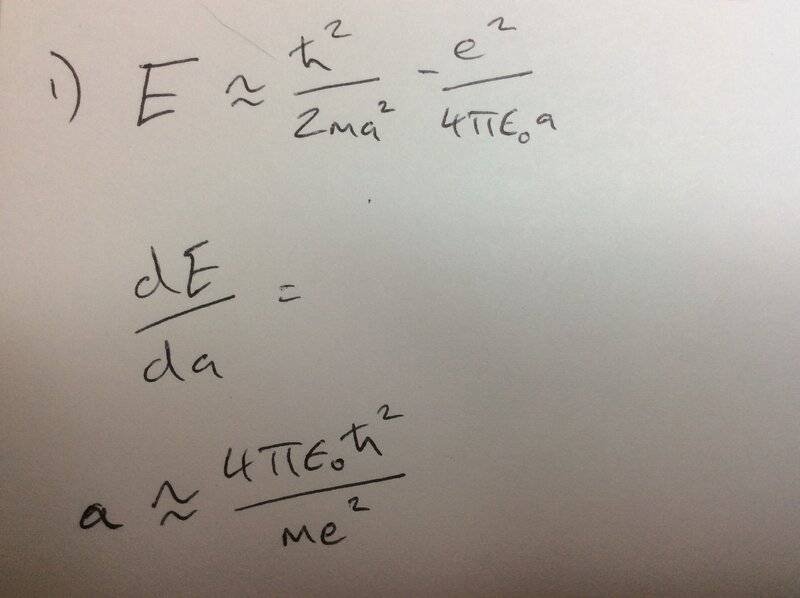 1) E ≈ ħ²/2ma² - e²/4πε₀a
dE/da =
a ≈ 4πε₀ħ²/me²